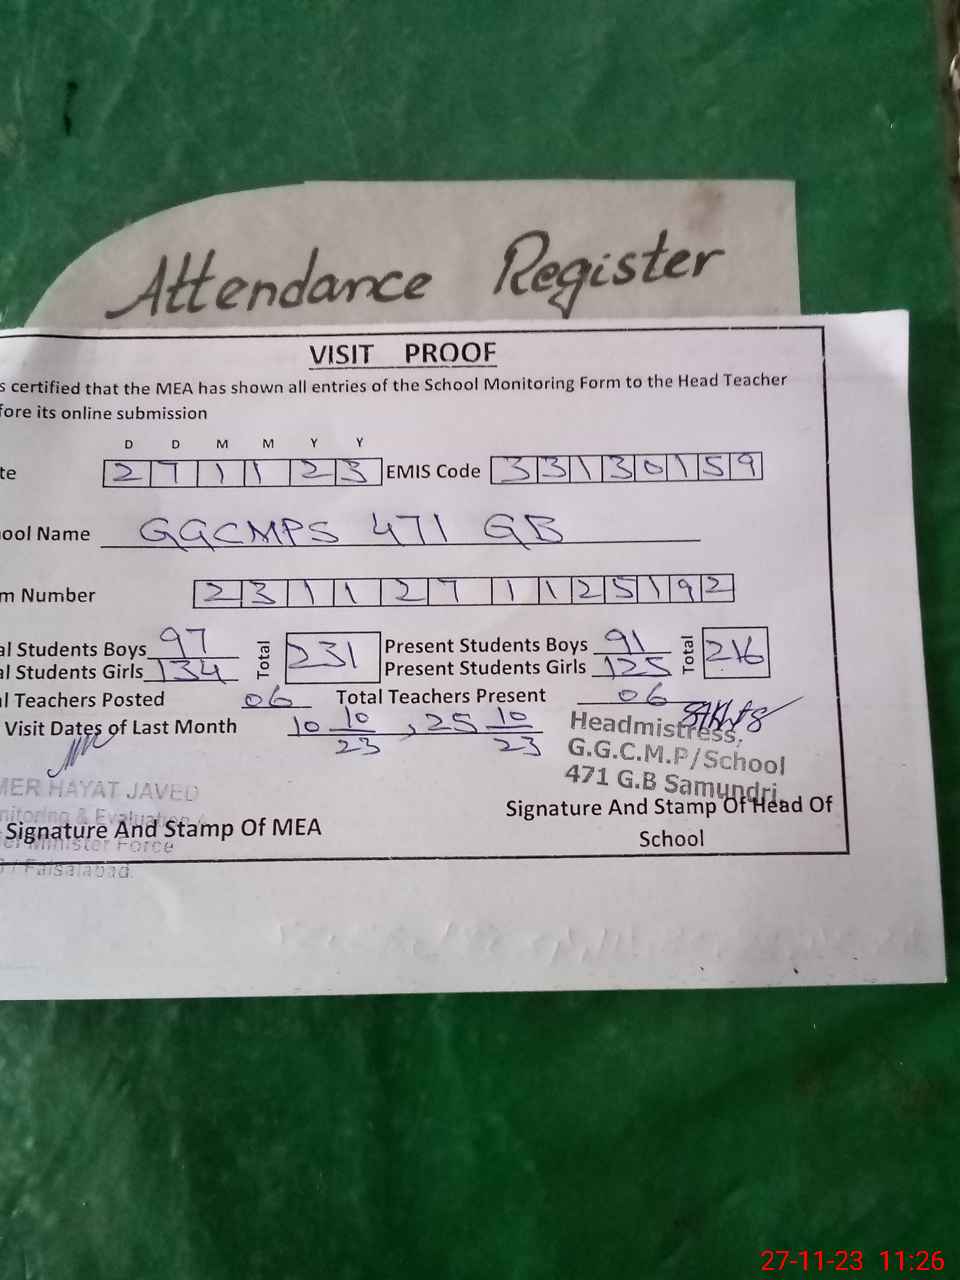 Attendance Register
VISIT PROOF
s certified that the MEA has shown all entries of the School Monitoring Form to the Head Teacher
fore its online submission
D D M M Y Y
te 2 7 1 1 2 3 EMIS Code 3 3 1 3 0 1 5 9
ool Name GGCMPS 471 GB
m Number 2 3 1 1 2 7 1 1 2 5 1 9 2
al Students Boys 97 Total 231 Present Students Boys 91 Total 216
al Students Girls 134 Present Students Girls 125
l Teachers Posted 06 Total Teachers Present 06
Visit Dates of Last Month 10 10/23, 25 10/23
Headmistress,
G.G.C.M.P/School
471 G.B Samundri
MER HAYAT JAVED
nitoring & Evaluation
Signature And Stamp Of MEA
Signature And Stamp Of Head Of
School
Minister Force
Faisalabad.
27-11-23 11:26